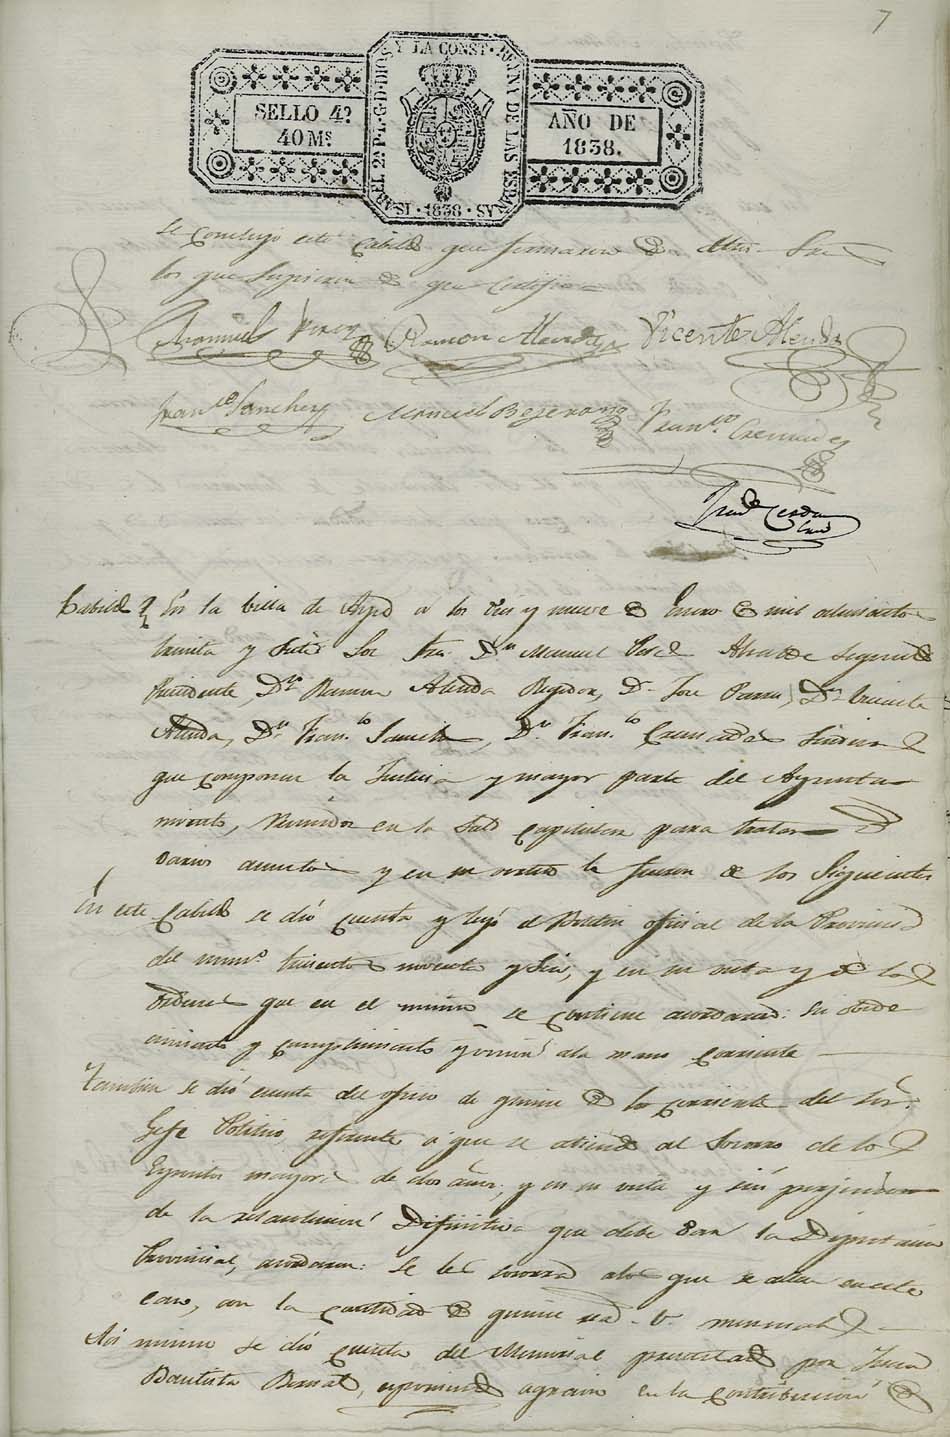 7
SELLO 4º
40 Ms
ISABEL 2ª P. L. G. D. DIOS Y LA CONST. REYNA DE LAS ESPAÑAS
· 1838 ·
AÑO DE
1838.
se concluyó este Cabildo que firmaron
los que supieron de que Certifico
Manuel Perez Ramon Alenda Vicente Alenda
Franco Sanchez Manuel Bejerano Franco Cremades
Cerdan
Cabildo En la Villa de Aspe a los diez y nueve de Enero de mil ochocientos
treinta y siete Los Dn Manuel Alcalde segundo
Presidente, Dn Ramon Alenda Regidor, Dn Jose Parra, Dn Vicente
Alenda, Dn Franco Sanchez, Dn Franco Cremades Sindico
que componen la Justicia y mayor parte del Ayunta
miento, reunidos en la Sala Capitular para tratar de
varios asuntos y en su virtud lo fueron de los Siguientes
En este Cabildo se dió cuenta y leyó el Boletin oficial de la Provincia
del numo trescientos noventa y seis, y en su vista y de las
ordenes que en el mismo se contiene acordaron: su obede
cimiento y cumplimiento y union a la mano corriente
Tambien se dió cuenta del oficio de quince de los corrientes del Sor.
Gefe Politico, referente a que se atienda al Socorro de los
Espositos mayores de dos años, y en su vista y sin perjuicio
de la resolucion Difinitiva que debe dar la Diputacion
Provincial, acordaron: Se les socorra a los que se allen en este
caso, con la cantidad de quince rs. v. mensuales
Asi mismo se dió cuenta del Memorial presentado por Juan
Bautista Bernal, esponiendo agravio en la contribucion de